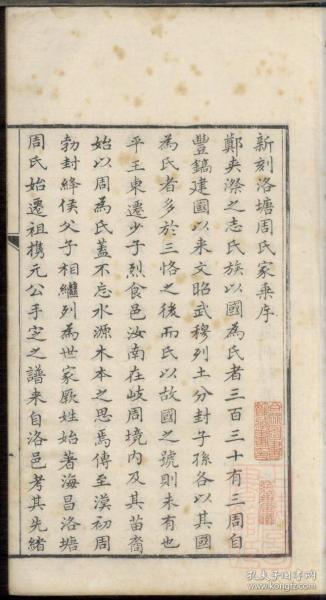 新刻洛塘周氏家乘序
鄭夾漈之志氏族以國為氏者三百三十有三周自
豐鎬建國以来文昭武穆列土分封子孫各以其國
為氏者多於三恪之後而氏以故國之號則未有也
平王東遷少子烈食邑汝南在岐周境内及其苗裔
始以周為氏蓋不忘水源木本之思焉傳至漢初周
勃封絳侯父子相繼列為世家厥姓始著海昌洛塘
周氏始遷祖携元公手定之譜来自洛邑考其先緒
孔夫子旧书网